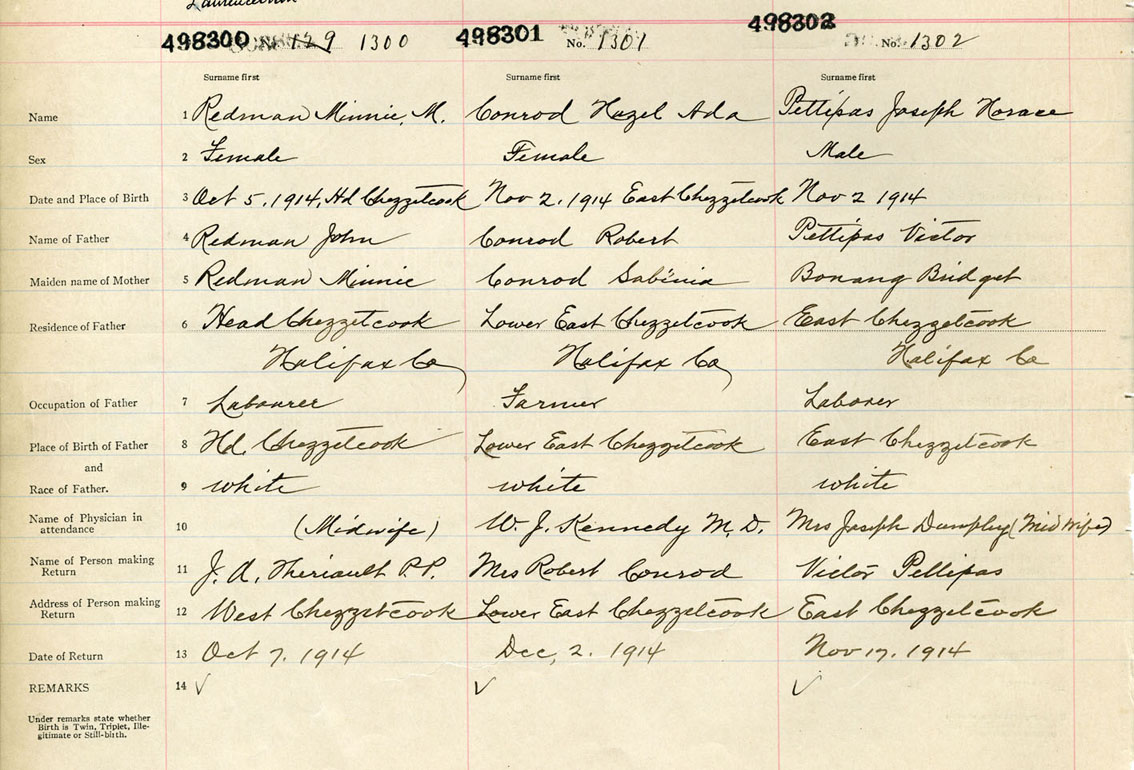 498300 129 1300 498301 No. 1301 498302 No. 1302
Surname first Surname first Surname first
Name 1 Redman Minnie, M. Conrod Hazel Ada Pettipas Joseph Horace
Sex 2 Female Female Male
Date and Place of Birth 3 Oct 5, 1914, Hd Chezzetcook Nov 2. 1914 East Chezzetcook Nov 2 1914
Name of Father 4 Redman John Conrod Robert Pettipas Victor
Maiden name of Mother 5 Redman Minnie Conrod Sabinia Bonang Bridget
Residence of Father 6 Head Chezzetcook Lower East Chezzetcook East Chezzetcook
Halifax Co Halifax Co Halifax Co
Occupation of Father 7 Labourer Farmer Laborer
Place of Birth of Father 8 Hd. Chezzetcook Lower East Chezzetcook East Chezzetcook
and
Race of Father. 9 white white white
Name of Physician in
attendance 10 (Midwife) W. J. Kennedy M.D. Mrs Joseph (Mid wife)
Name of Person making
Return 11 J. A. Theriault P.P. Mrs Robert Conrod Victor Pettipas
Address of Person making
Return 12 West Chezzetcook Lower East Chezzetcook East Chezzetcook
Date of Return 13 Oct 7. 1914 Dec, 2. 1914 Nov 17. 1914
REMARKS 14 ✓ ✓ ✓
Under remarks state whether
Birth is Twin, Triplet, Ille-
gitimate or Still-birth.